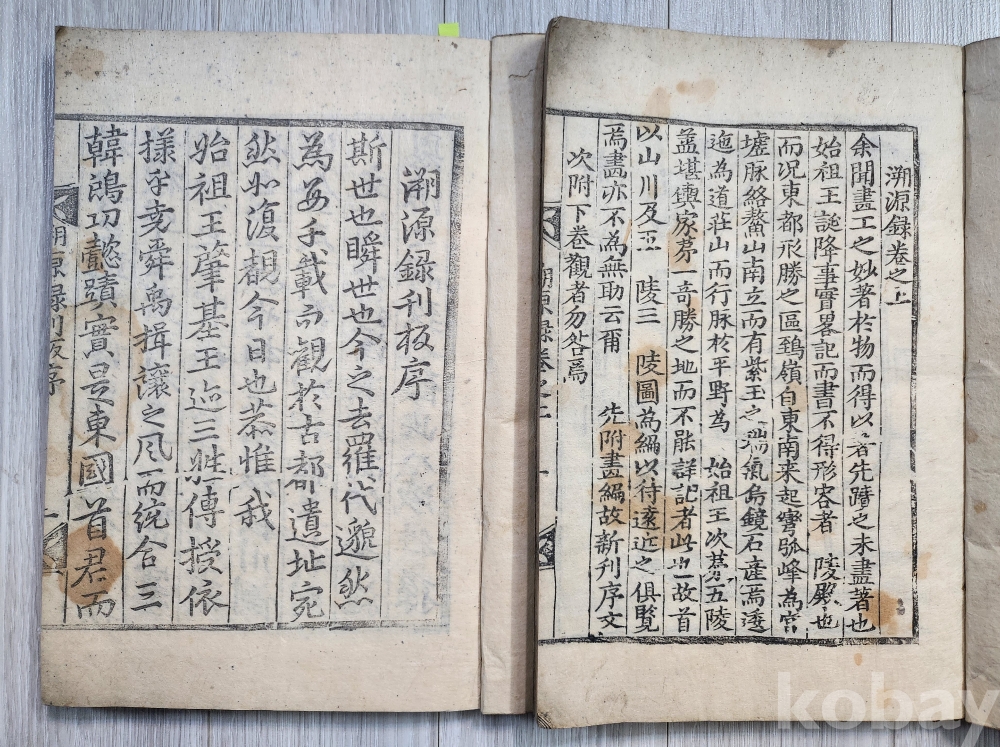 溯源錄卷之上
余聞畫工之妙著於物而得以著先蹟之未盡著也
始祖王誕降事實畧記而書不得形容者 陵殿也
而况東都形勝之區鵄嶺自東南来起穹峰為宮
墟脉絡鰲山南立而有紫王之瑞氣烏鏡石産焉逶
迤為道莊山而行脉於平野為 始祖王次葬五陵
盖堪輿家第一奇勝之地而不能詳記者此也故首
以山川及五 陵三 陵圖為編以待遠近之俱覧
焉畫亦不為無助云爾 先附畫編故新刊序文
次附下卷觀者勿咎焉
溯源錄卷之上
溯源錄刊板序
斯世也瞬世也今之去羅代邈然
為數千載而觀於古都遺址宛
然如復覩今日也恭惟我
始祖王肇基王迹三姓傳授依
樣乎堯舜禹揖讓之風而統合三
韓鴻功懿蹟實是東國首君而
溯源錄刊板序
kobay